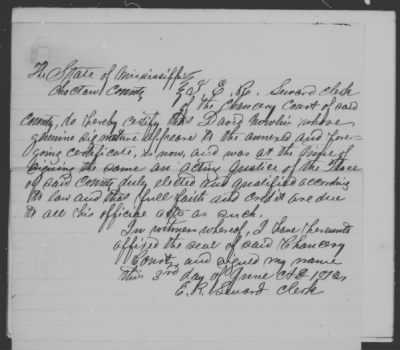 The State of Mississippi
Choctaw County
I, E. R. Seward clerk
of the Chancery Court of said
county, do hereby certify that David Nowlin whose
genuine signature appears to the annexed and fore-
going certificate, is now, and was at the time of
signing the same an acting Justice of the Peace
of said county duly elected and qualified according
to law and that full faith and credit are due
to all his official acts as such.
In witness whereof, I have hereunto
affixed the seal of said Chancery
Court, and signed my name
this 3rd day of June AD 1912,
E. R. Seward Clerk